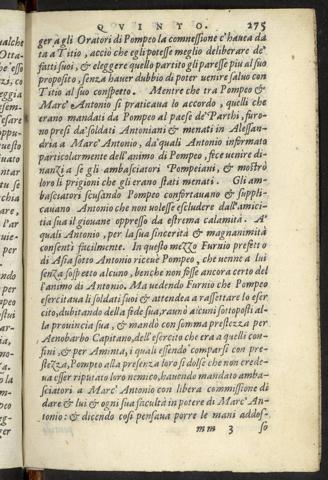 QVINTO. 275
ger à gli Oratori di Pompeo la commessione c'hauea da
ta a Titio, acciò che egli potesse meglio deliberare de'
fatti suoi, & eleggere quello partito gli paresse piu al suo
proposito, senza hauer dubbio di poter uenire saluo con
Titio al suo conspetto. Mentre che tra Pompeo &
Marc' Antonio si praticaua lo accordo, quelli che
erano mandati da Pompeo al paese de' Parthi, furo-
no presi da' soldati Antoniani & menati in Alessan-
dria a Marc' Antonio, da' quali Antonio informato
particolarmente dell'animo di Pompeo, fece uenire di-
nanzi a se gli ambasciatori Pompeiani, & mostrò
loro li prigioni che gli erano stati menati. Gli am-
basciatori scusando Pompeo confortauano & suppli-
cauano Antonio che non uolesse escludere dall'amici-
tia sua il giouane oppresso da estrema calamità. A'
quali Antonio, per la sua sincerità & magnanimità
consentì facilmente. In questo mezzo Furnio prefetto
di Asia sotto Antonio riceuè Pompeo, che uenne a lui
senza sospetto alcuno, benche non fosse ancora certo del
l'animo di Antonio. Ma uedendo Furnio che Pompeo
esercitaua li soldati suoi & attendea a rassettare lo eser
cito, dubitando della fede sua, raunò alcuni sottoposti al-
la prouincia sua, & mandò con somma prestezza per
Aenobarbo Capitano, dell'esercito che era a quelli con-
fini, & per Aminta, i quali essendo comparsi con pre-
stezza, Pompeo alla presenza loro si dolse che non crede-
ua esser riputato loro nemico, hauendo mandato amba-
sciatori a Marc' Antonio con libera commissione di
dare & lui & ogni sua facultà in potere di Marc' An-
tonio: & dicendo così pensaua porre le mani addos-
mm 3 so